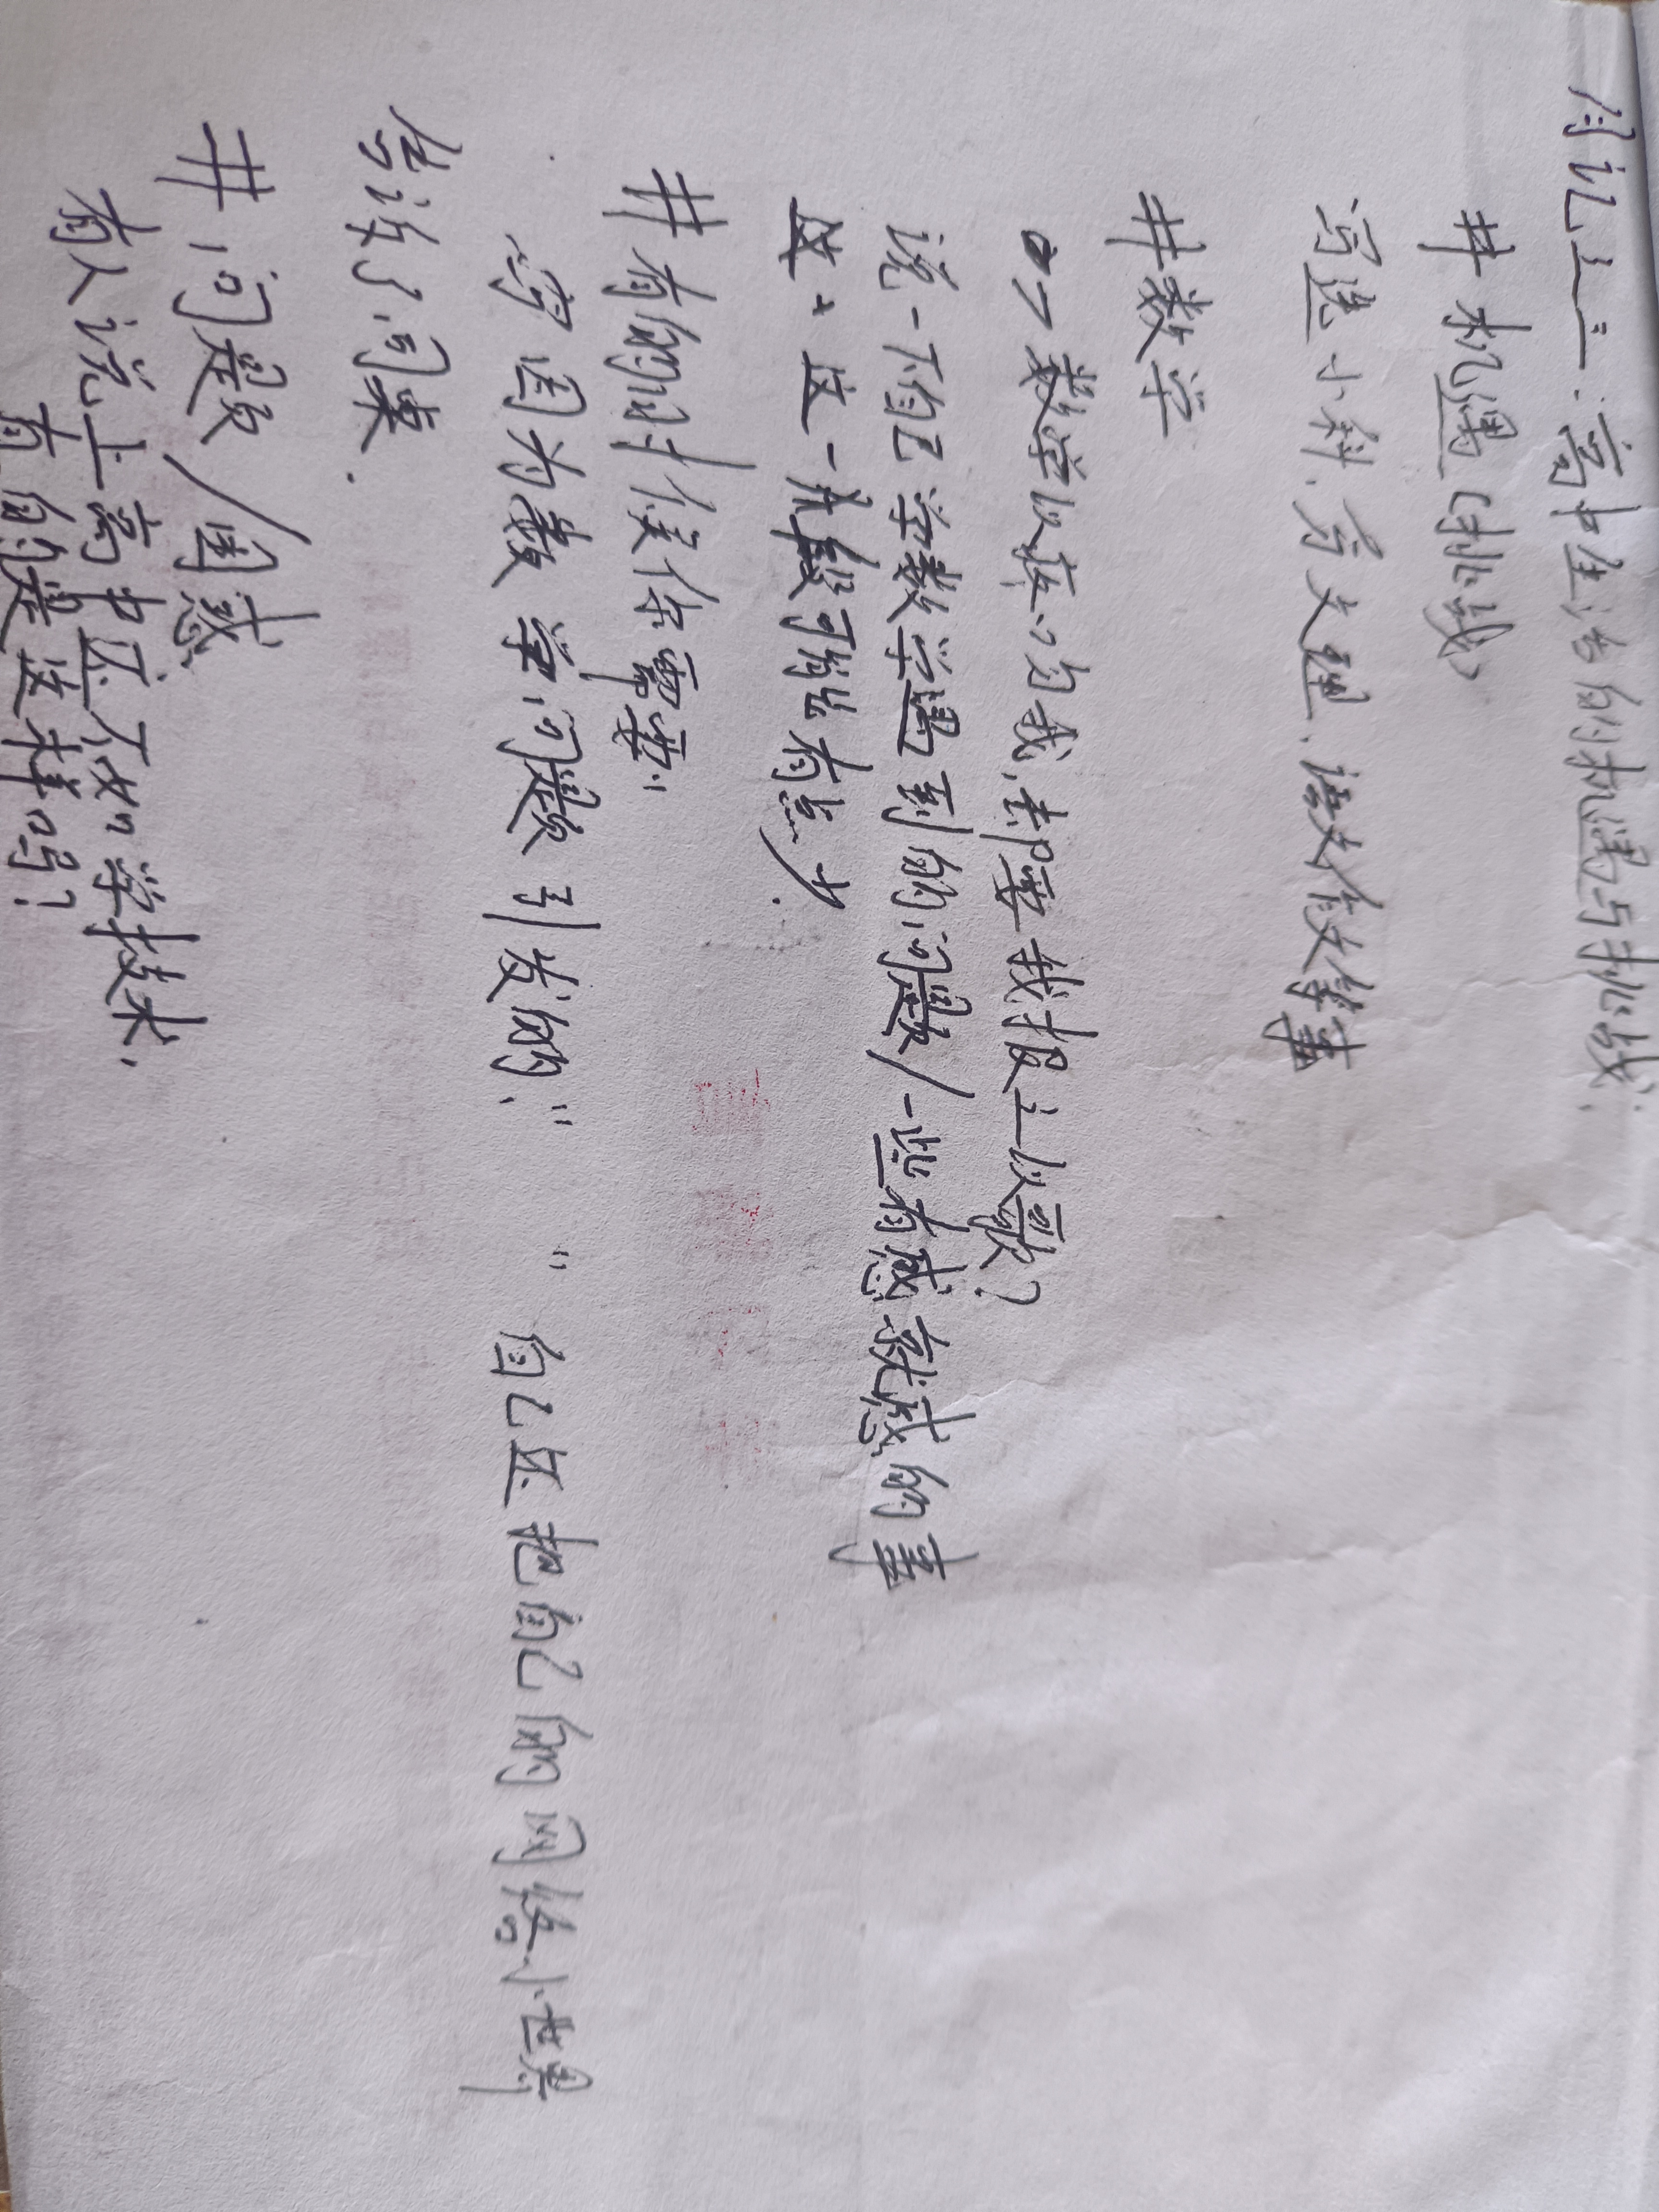 月记之三：高中生活的机遇与挑战：
# 机遇（挑战）
写选小科、分文理、语文作文等事
#数学
一数学以疼吻我,却要我报之以歌?
说一下自己学数学遇到的问题/一些有感就感的事
这一段可能有点少.
#有的时候你需要"
写因为数学问题引发的." " 自己还把自己的网络小世界
告诉了同桌.
# 问题/困惑
有人说上高中还不如学技术,
真的是这样吗?